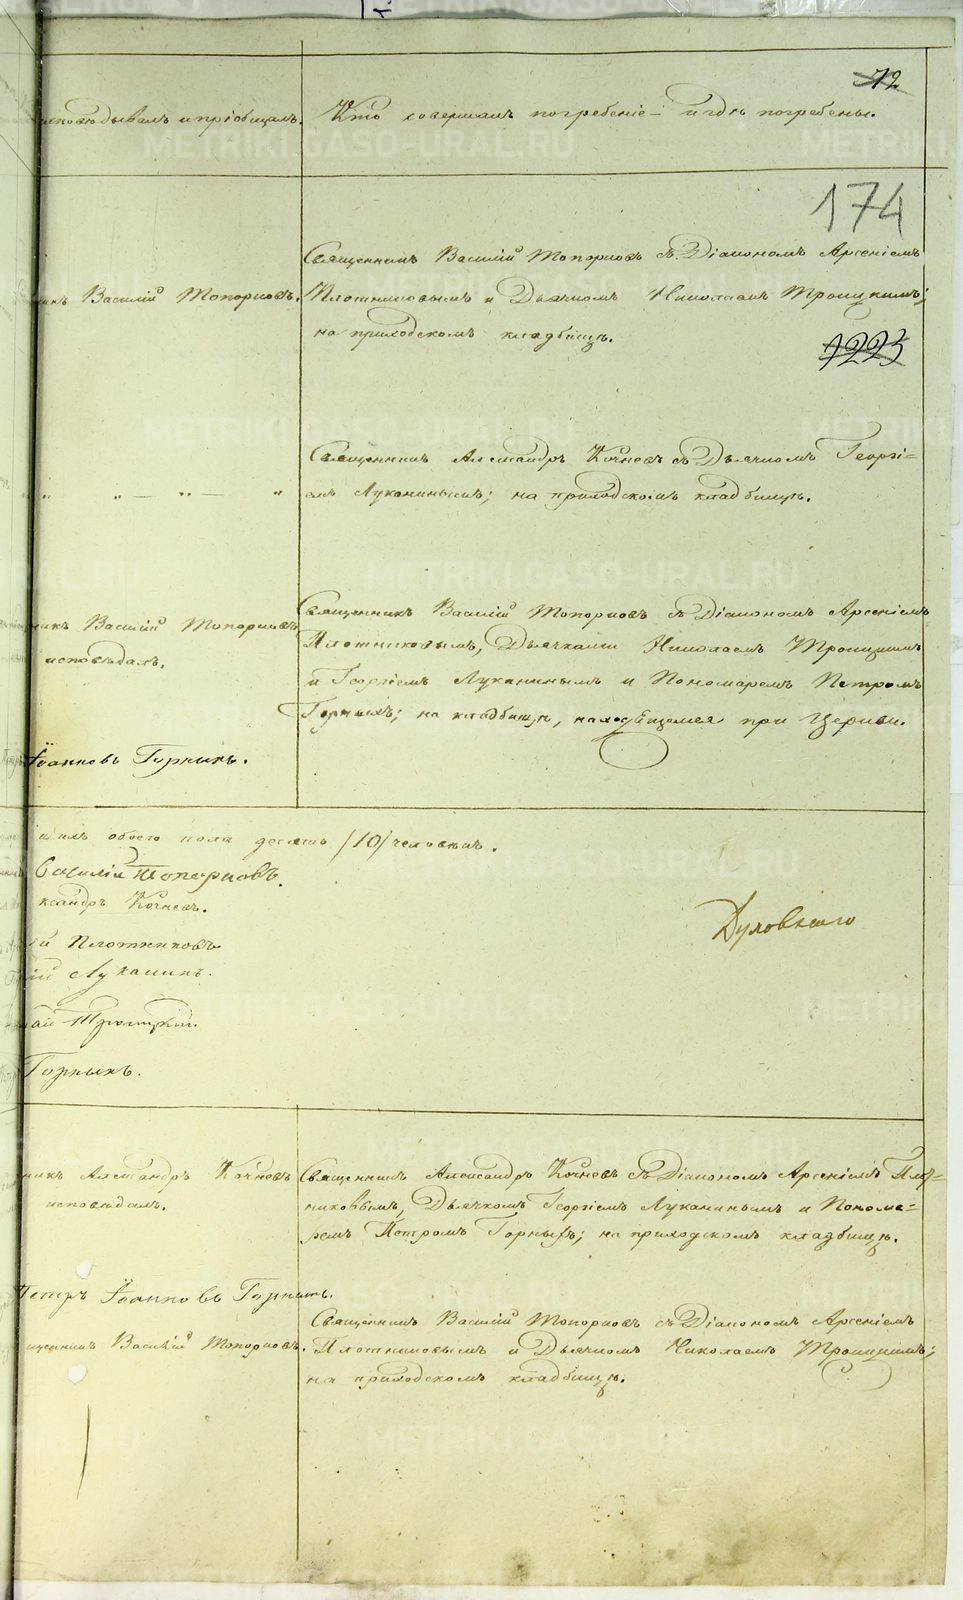 72
исповѣдывалъ и пріобщалъ.
Кто совершалъ погребеніе и гдѣ погребены.
174
Священникъ Василій Топорковъ съ Діакономъ Арсеніемъ
никъ Василій Топорковъ.
Плотниковымъ и Дьячкомъ Николаемъ Троицкимъ;
на приходскомъ кладбищѣ.
1223
Священникъ Александръ Кочневъ съ Дьячкомъ Георгі=
" " — " — "
емъ Луканинымъ; на приходскомъ кладбищѣ.
Священникъ Василій Топорковъ съ Діакономъ Арсеніемъ
никъ Василій Топорковъ
Плотниковымъ, Дьячками Николаемъ Троицкимъ
исповѣдалъ.
и Георгіемъ Луканинымъ и Пономаремъ Петромъ
Горныхъ; на кладбищѣ, находящемся при Церкви.
Іоанновъ Горныхъ.
ихъ обоего пола десять /10/ человѣкъ.
Василій Топорковъ.
ксандръ Кочневъ.
Духовнаго
ій Плотниковъ
гій Луканинъ.
лай Троицкій.
Горныхъ.
никъ Александръ Кочневъ
исповѣдалъ.
Священникъ Александръ Кочневъ съ Діакономъ Арсеніемъ Плот=
никовымъ, Дьячкомъ Георгіемъ Луканинымъ и Понома=
ремъ Петромъ Горныхъ; на приходскомъ кладбищѣ.
Петръ Іоанновъ Горныхъ.
Священникъ Василій Топорковъ съ Діакономъ Арсеніемъ
щенникъ Василій Топорковъ.
Плотниковымъ и Дьячкомъ Николаемъ Троицкимъ;
на приходскомъ кладбищѣ.
METRIKI.GASO-URAL.RU